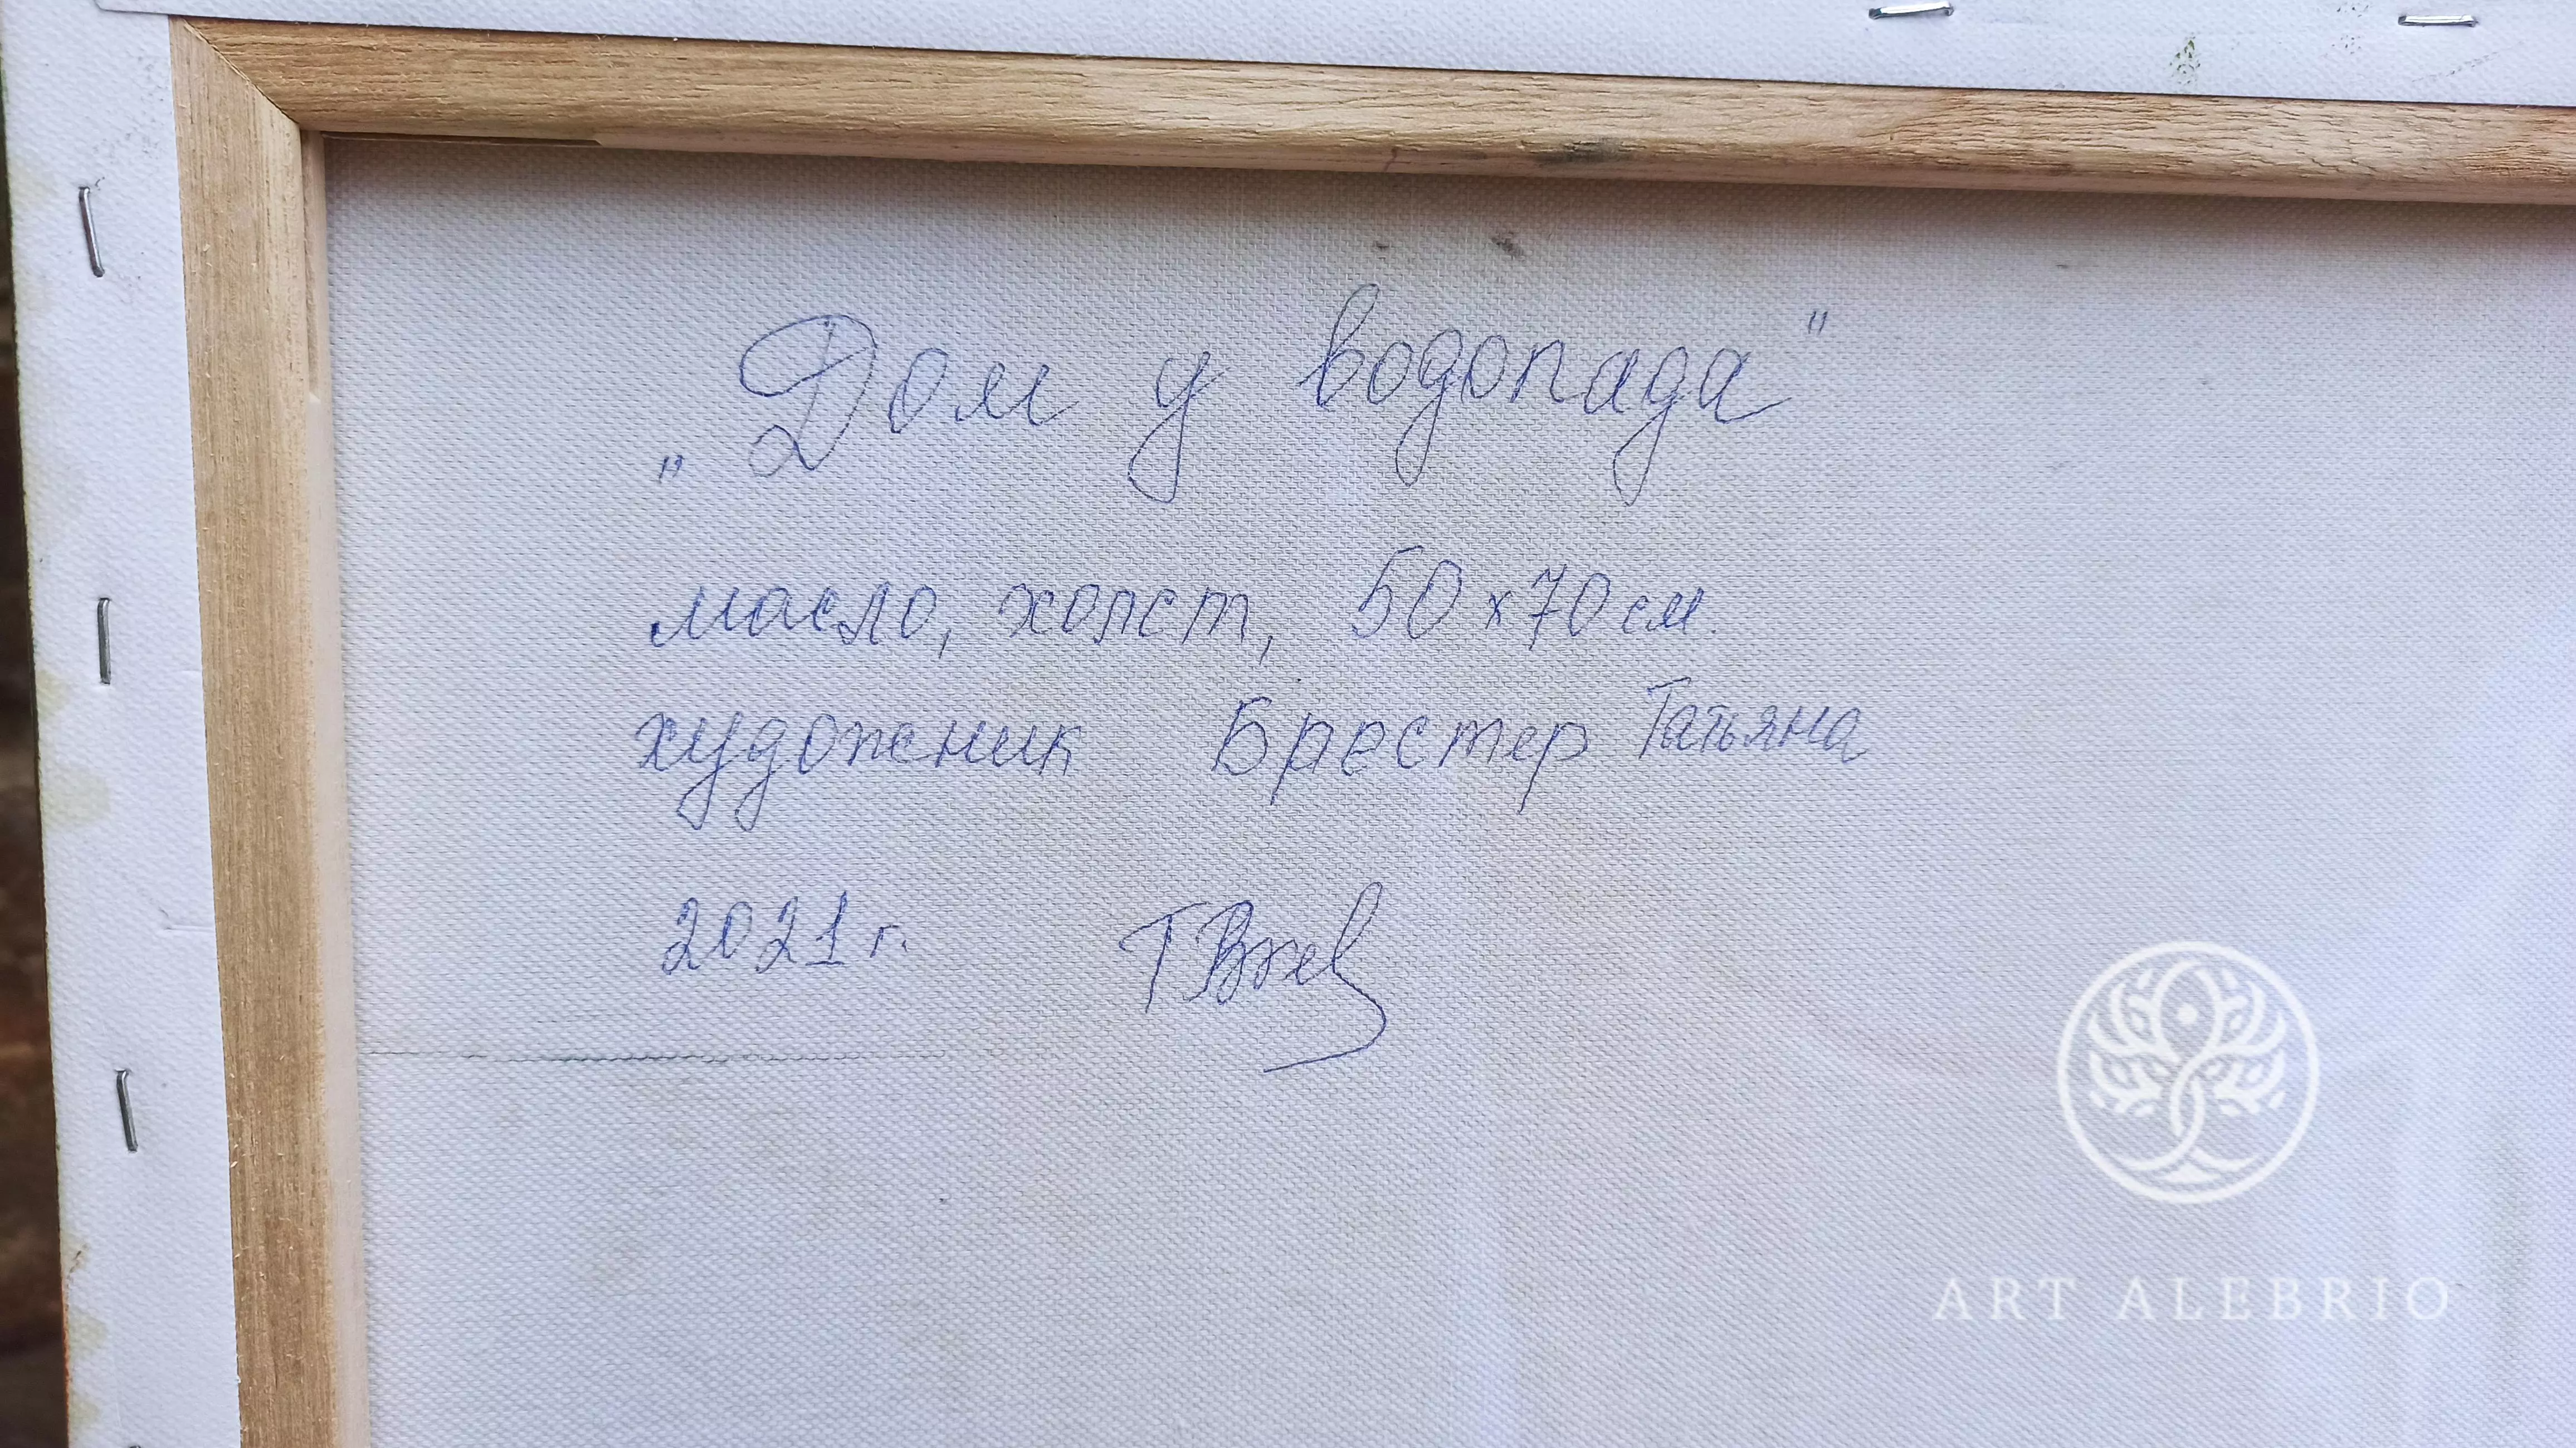 „Дом у водопада"
масло, холст, 50х70см.
художник Брестер Татьяна
2021 г.
ART ALEBRIO